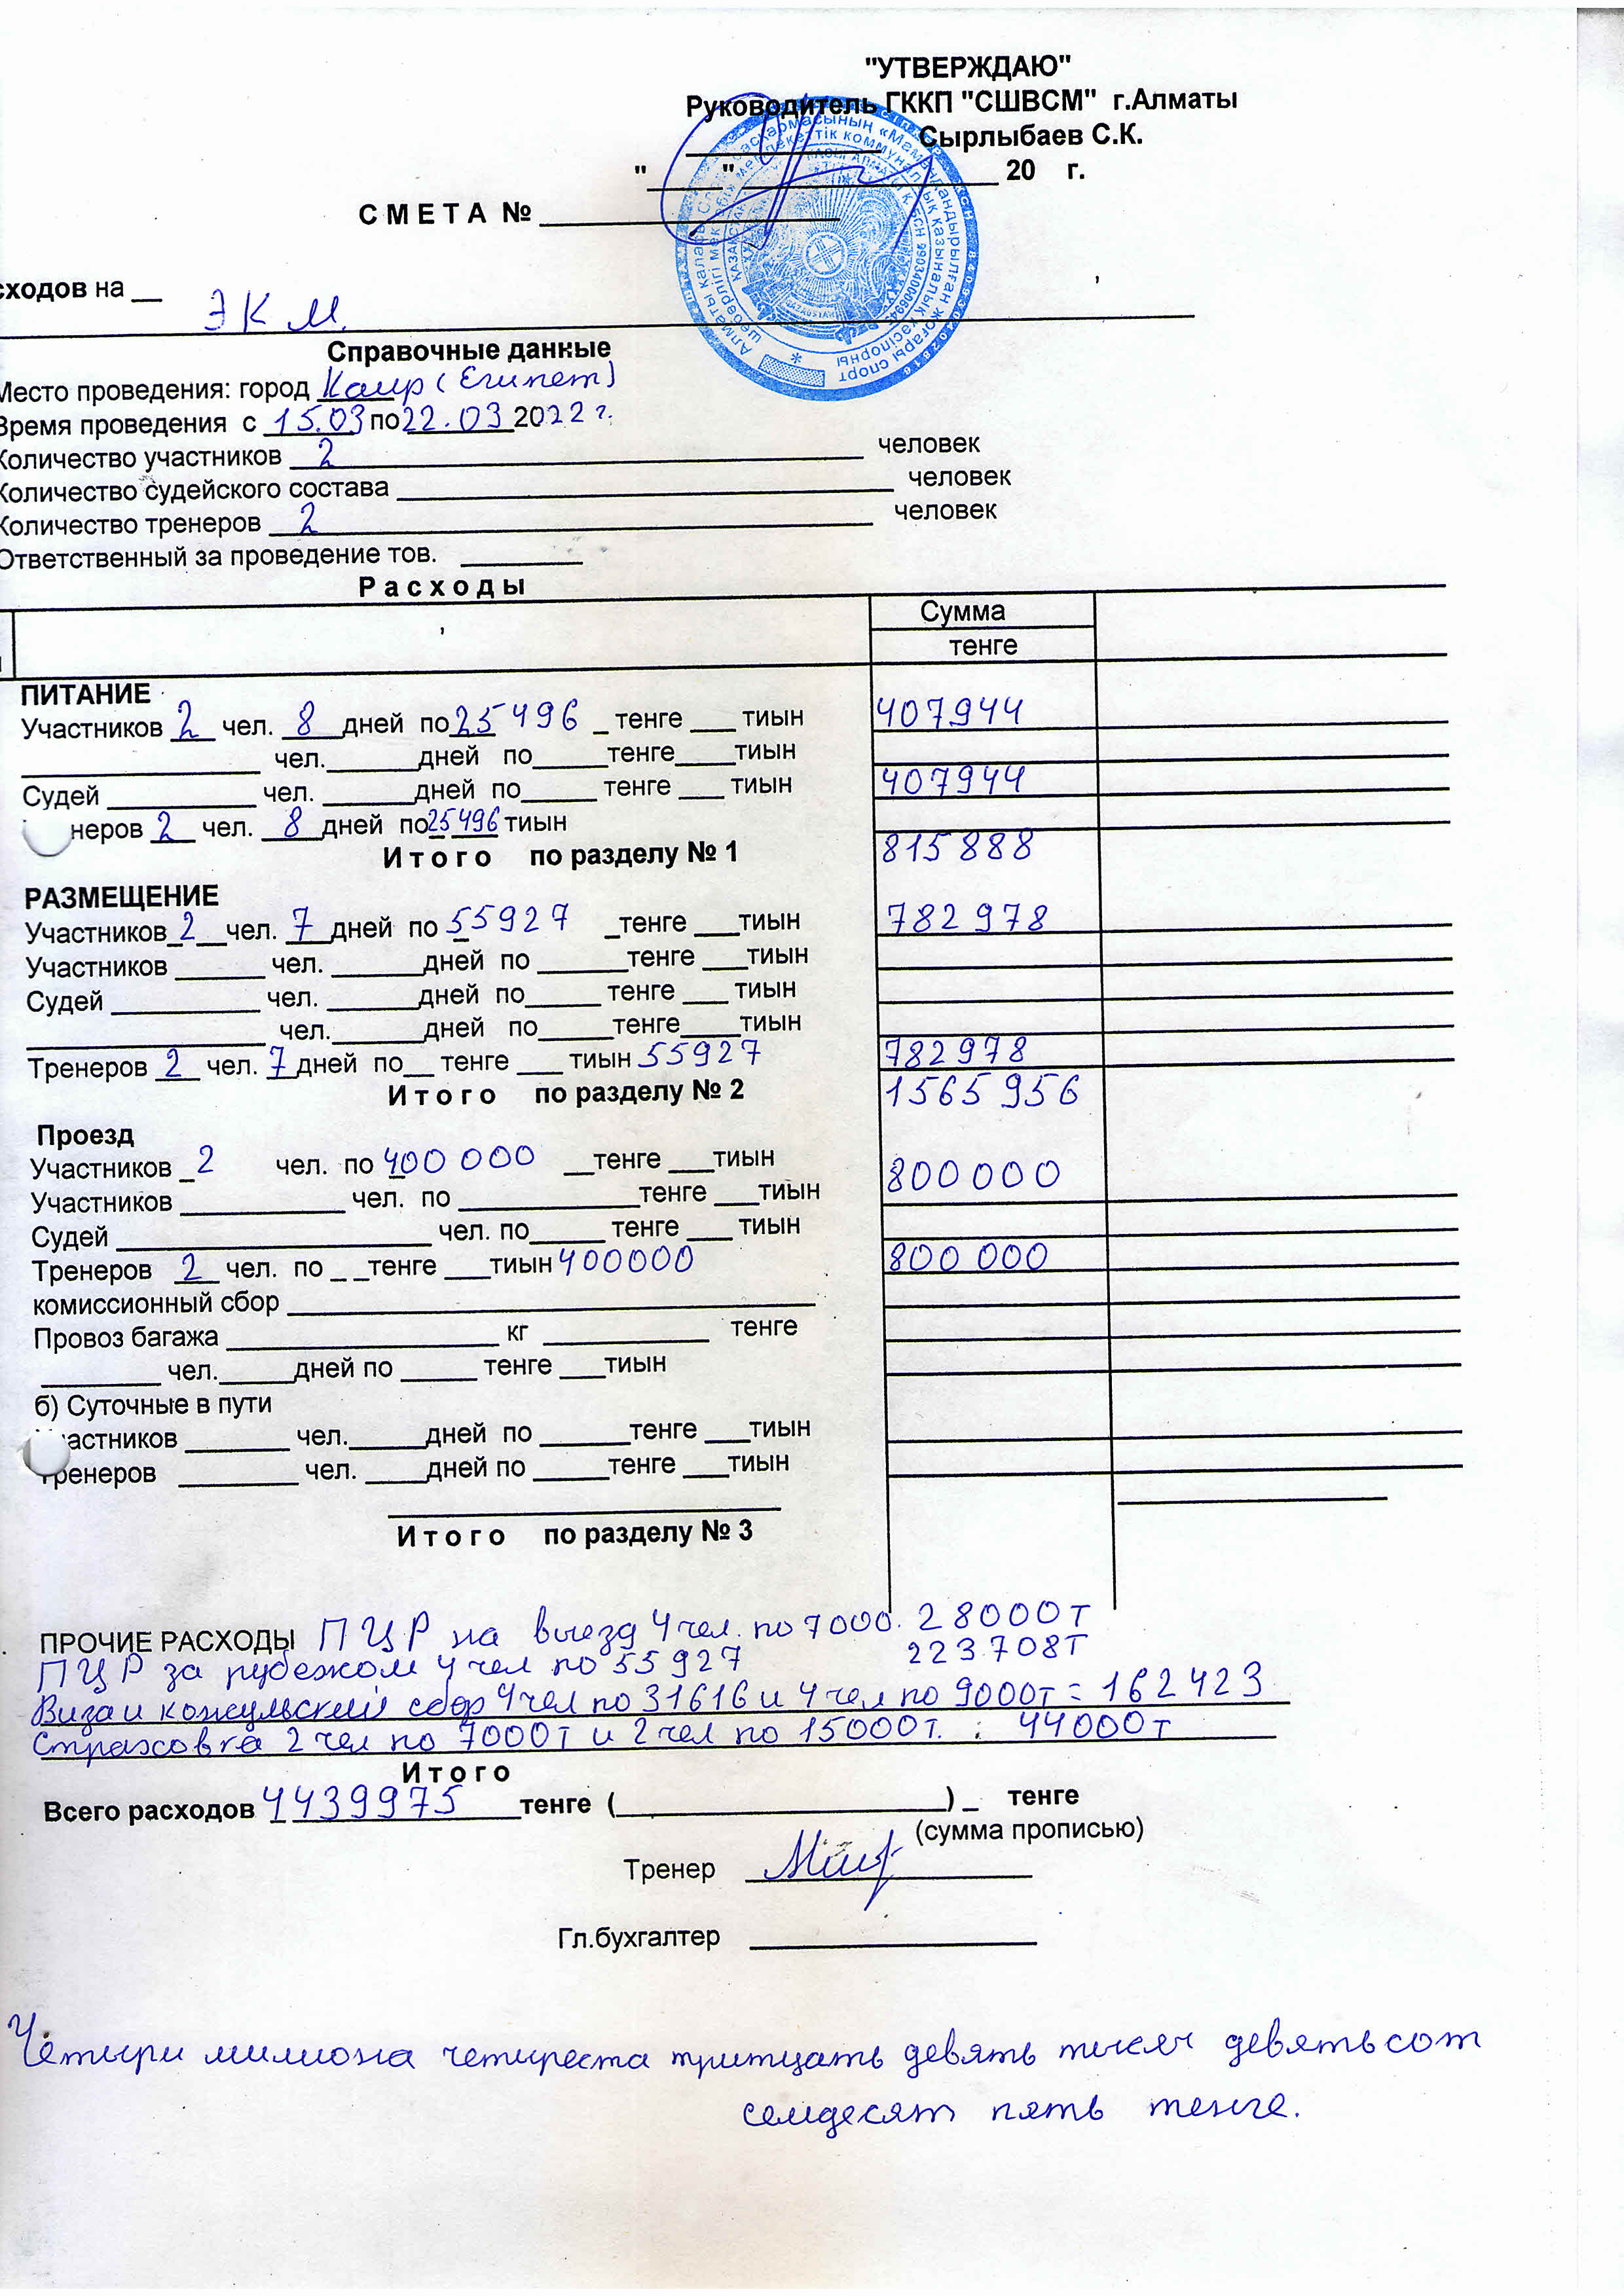 "УТВЕРЖДАЮ"
Руководитель ГККП "СШВСМ" г.Алматы
Сырлыбаев С.К.
"_____" _________________ 20 г.
С М Е Т А № ____________________
сходов на __
ЭКМ.
Справочные данные
Место проведения: город Каир (Египет)
Время проведения с 15.03 по 22.03 2022 г.
Количество участников 2 человек
Количество судейского состава ____ человек
Количество тренеров 2 человек
Ответственный за проведение тов. ________
Р а с х о д ы
Сумма
тенге
ПИТАНИЕ
Участников 2 чел. 8 дней по 25496 _ тенге ___ тиын 407944
________________ чел.______дней по_____тенге____тиын
Судей __________ чел. ______дней по_____ тенге ___ тиын 407944
неров 2 чел. 8 дней по 25496 тиын
И т о г о по разделу № 1 815888
РАЗМЕЩЕНИЕ
Участников 2 чел. 7 дней по 55927 _тенге ___тиын 782 978
Участников ______ чел. ______дней по ______тенге ___тиын
Судей __________ чел. ______дней по_____ тенге ___ тиын
________________ чел.______дней по_____тенге____тиын
Тренеров 2 чел. 7 дней по__ тенге ___ тиын 55927 782978
И т о г о по разделу № 2 1565 956
Проезд
Участников _2 чел. по 400 000 __тенге ___тиын 800000
Участников ___________ чел. по ____________тенге ___тиын
Судей _____________________ чел. по_____ тенге ___ тиын
Тренеров 2 чел. по _ _тенге ___тиын 400000 800 000
комиссионный сбор ____________________
Провоз багажа __________________ кг ___________ тенге
________ чел._____дней по _____ тенге ___тиын
б) Суточные в пути
астников _______ чел._____дней по ______тенге ___тиын
Тренеров ________ чел. ____дней по _____тенге ___тиын
И т о г о по разделу № 3
ПРОЧИЕ РАСХОДЫ ПЦР на выезд 4 чел. по 7000. 28000т
ПЦР за рубежом 4 чел по 55927 223708т
Виза и консульский сбор 4 чел по 31616 и 4 чел по 9000т = 162423
Страховка 2 чел по 7000т и 2 чел по 15000т. : 44000т
И т о г о
Всего расходов 4439975 тенге (______________________) _ тенге
(сумма прописью)
Тренер
Гл.бухгалтер ___________________
Четыри милиона четыреста тритцать девять тысяч девятьсот
семдесят пять тенге.